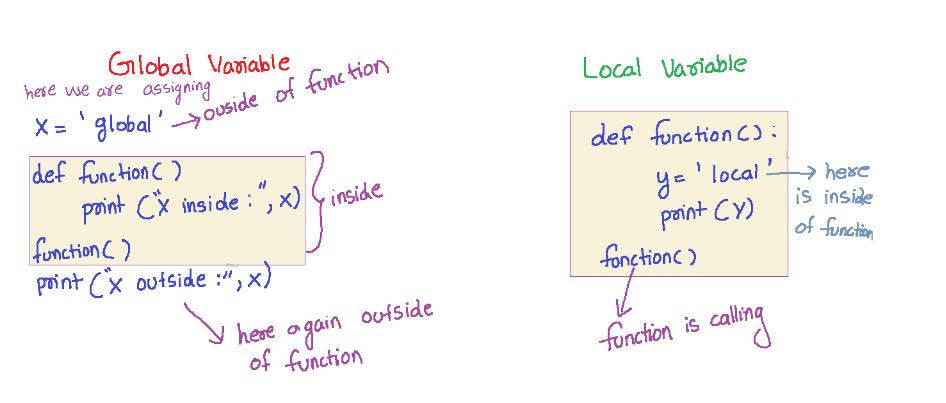 Global Variable
here we are assigning
x = 'global' → ouside of function
def function()
print ("x inside :", x)
function()
inside
print ("x outside :", x)
here again outside
of function
Local Variable
def function() :
y = 'local' → here
is inside
of function
print (y)
function()
function is calling